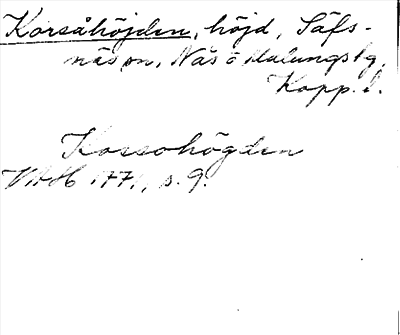 Korsåhöjden, höjd, Säfs-
näs sn, Nås o Malungs tg,
Kopp. l.
Korsohögden
VAH 177, s. 9.